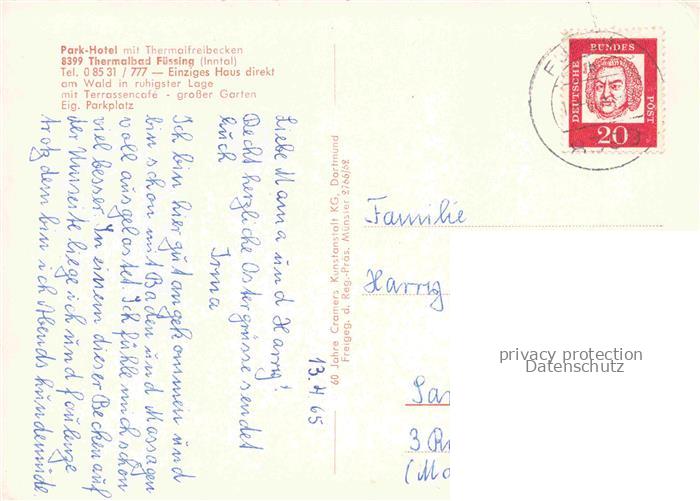 Park-Hotel mit Thermalfreibecken
8399 Thermalbad Füssing (Inntal)
Tel. 0 85 31 / 777 — Einziges Haus direkt
am Wald in ruhigster Lage
mit Terrassencafé - großer Garten
Eig. Parkplatz
13.4.65
Liebe Mama und Harry!
Recht herzliche Ostergrüsse sendet
Euch
Irma
Ich bin hier gut angekommen und
bin schon mit Baden und Massagen
voll ausgelastet. Ich fühle mich schon
viel besser. In einem dieser Becken auf
der Umseite liege ich und faulenze
trotzdem bin ich Abends hundemüde
60 Jahre Cramers Kunstanstalt KG, Dortmund
Freigeg. d. Reg.-Präs. Münster 2766/62
DEUTSCHE BUNDES POST
20
Familie
Harry
3
(Mo
privacy protection
Datenschutz